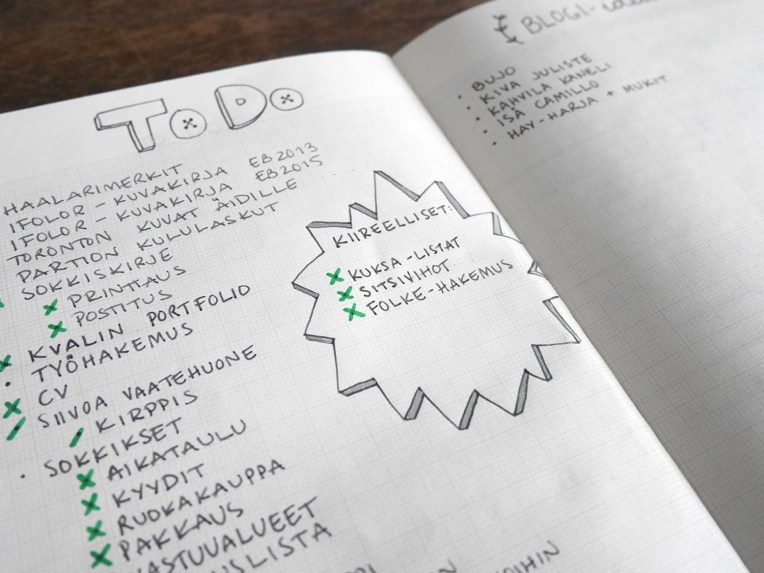 TO DO
HAALARIMERKIT
IFOLOR - KUVAKIRJA EB2013
IFOLOR - KUVAKIRJA EB2015
TORONTON KUVAT ÄIDILLE
PARTION KULULASKUT
SOKKISKIRJE
PRINTTAUS
POSTITUS
KVALIN PORTFOLIO
TYÖHAKEMUS
CV
SIIVOA VAATEHUONE
KIRPPIS
SOKKIKSET
AIKATAULU
KYYDIT
RUOKAKAUPPA
PAKKAUS
VASTUVALUEET
KIIREELLISET:
KUKSA-LISTAT
SITSIVIHOT
FOLKE-HAKEMUS
BLOGI-
BUJO
KIVA JULISTE
KAHVILA KANELI
ISA CAMILLO
HAY-HARJA + MUKIT